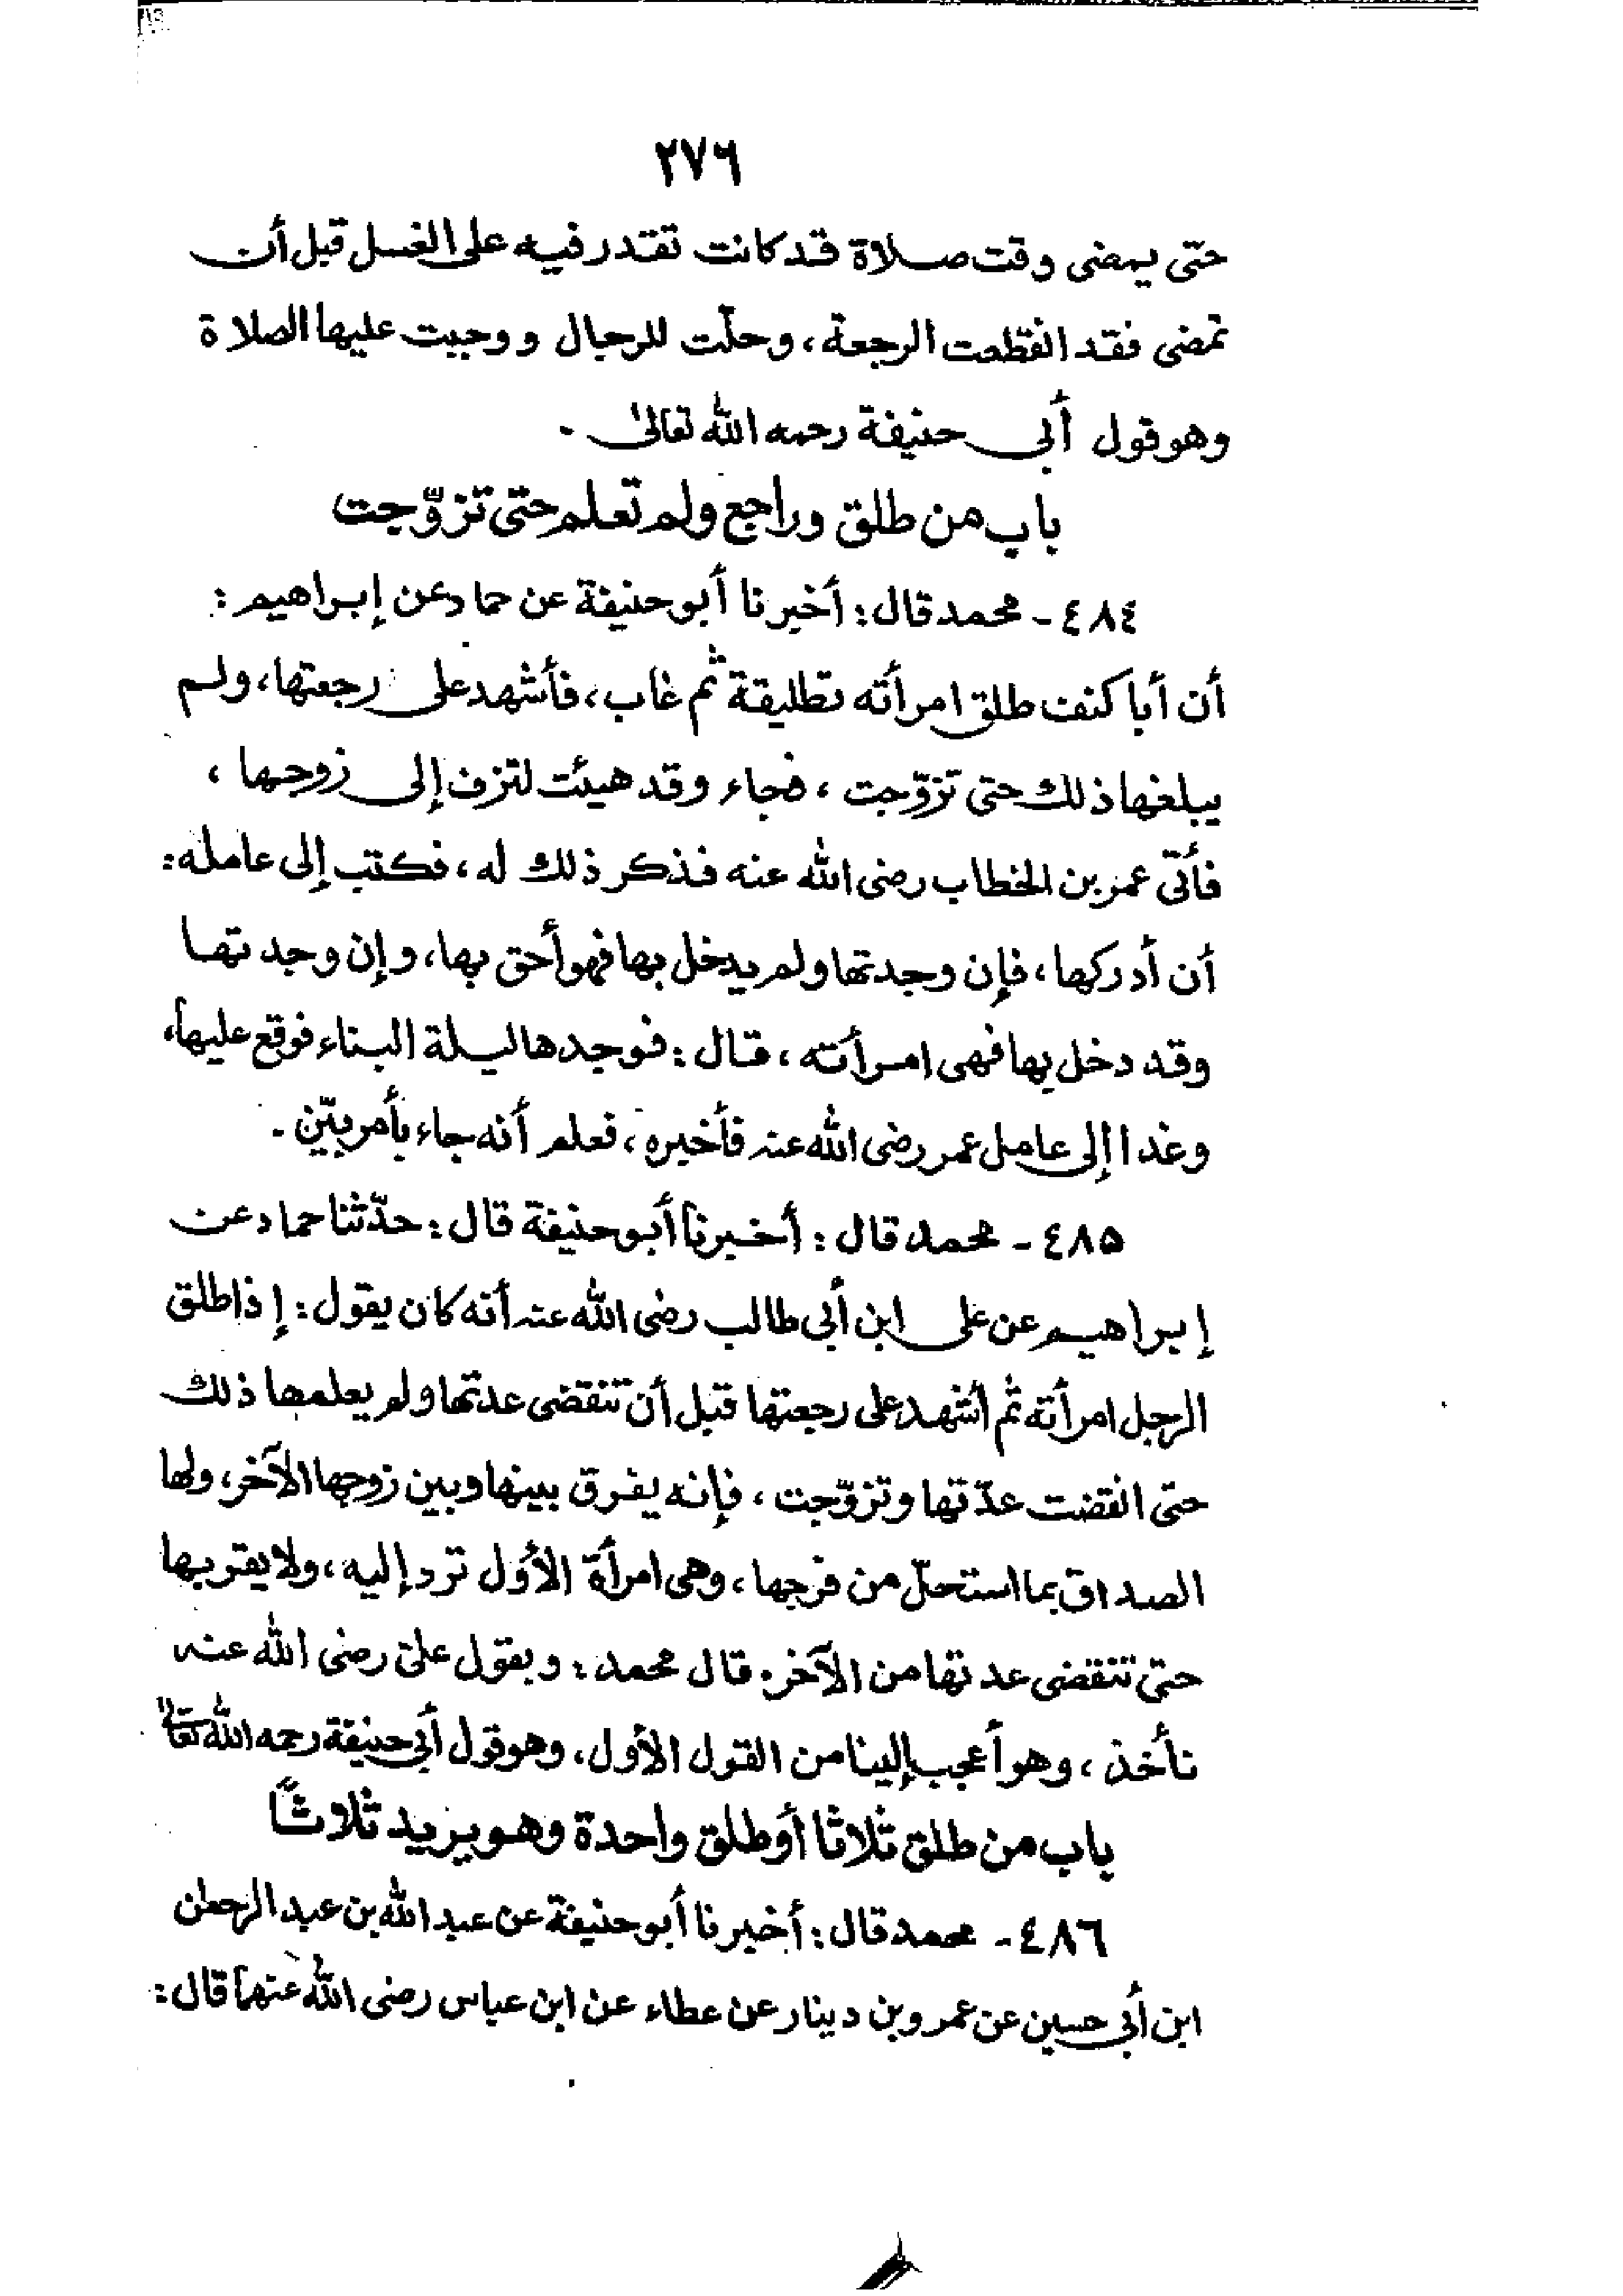 ٢٧٦
حتى يمضى وقت صلاة قد كانت تقدر فيه على الغسل قبل أن
تمضى فقد انقطعت الرجعة، وحلّت للرجال ووجبت عليها الصلاة
وهو قول أبى حنيفة رحمه الله تعالىٰ .
باب من طلق وراجع ولم تعلم حتى تزوّجت
٤٨٤ - محمد قال: أخبرنا أبو حنيفة عن حماد عن إبراهيم:
أن أبا كنف طلق امرأته تطليقة ثم غاب، فأشهد على رجعتها، ولم
يبلغها ذلك حتى تزوّجت ، فجاء وقد هيئت لتزف إلى زوجها ،
فأتى عمر بن الخطاب رضى الله عنه فذكر ذلك له، فكتب إلى عامله:
أن أدركها، فإن وجدتها ولم يدخل بها فهو أحق بها، وإن وجدتها
وقد دخل بها فهى امرأته ، قال: فوجدها ليلة البناء فوقع عليها،
وغدا إلى عامل عمر رضى الله عنه فأخبره ، فعلم أنه جاء بأمر بيّن .
٤٨٥ - محمد قال: أخبرنا أبو حنيفة قال: حدّثنا حماد عن
إبراهيم عن على ابن أبى طالب رضى الله عنه أنه كان يقول: إذا طلق
الرجل امرأته ثم أشهد على رجعتها قبل أن تنقضى عدتها ولم يعلمها ذلك
حتى انقضت عدّتها وتزوّجت ، فإنه يفرق بينها وبين زوجها الآخر، ولها
الصداق بما استحلّ من فرجها، وهى امرأة الأول ترد إليه، ولا يقربها
حتى تنقضى عدتها من الآخر. قال محمد: وبقول علىّ رضى الله عنه
نأخذ ، وهو أعجب إلينا من القول الأول، وهو قول أبى حنيفة رحمه الله تعالىٰ
باب من طلق ثلاثا أو طلق واحدة وهو يريد ثلاثاً
٤٨٦ - محمد قال: أخبرنا أبو حنيفة عن عبد الله بن عبد الرحمٰن
ابن أبى حسين عن عمرو بن دينار عن عطاء عن ابن عباس رضى الله عنهما قال: